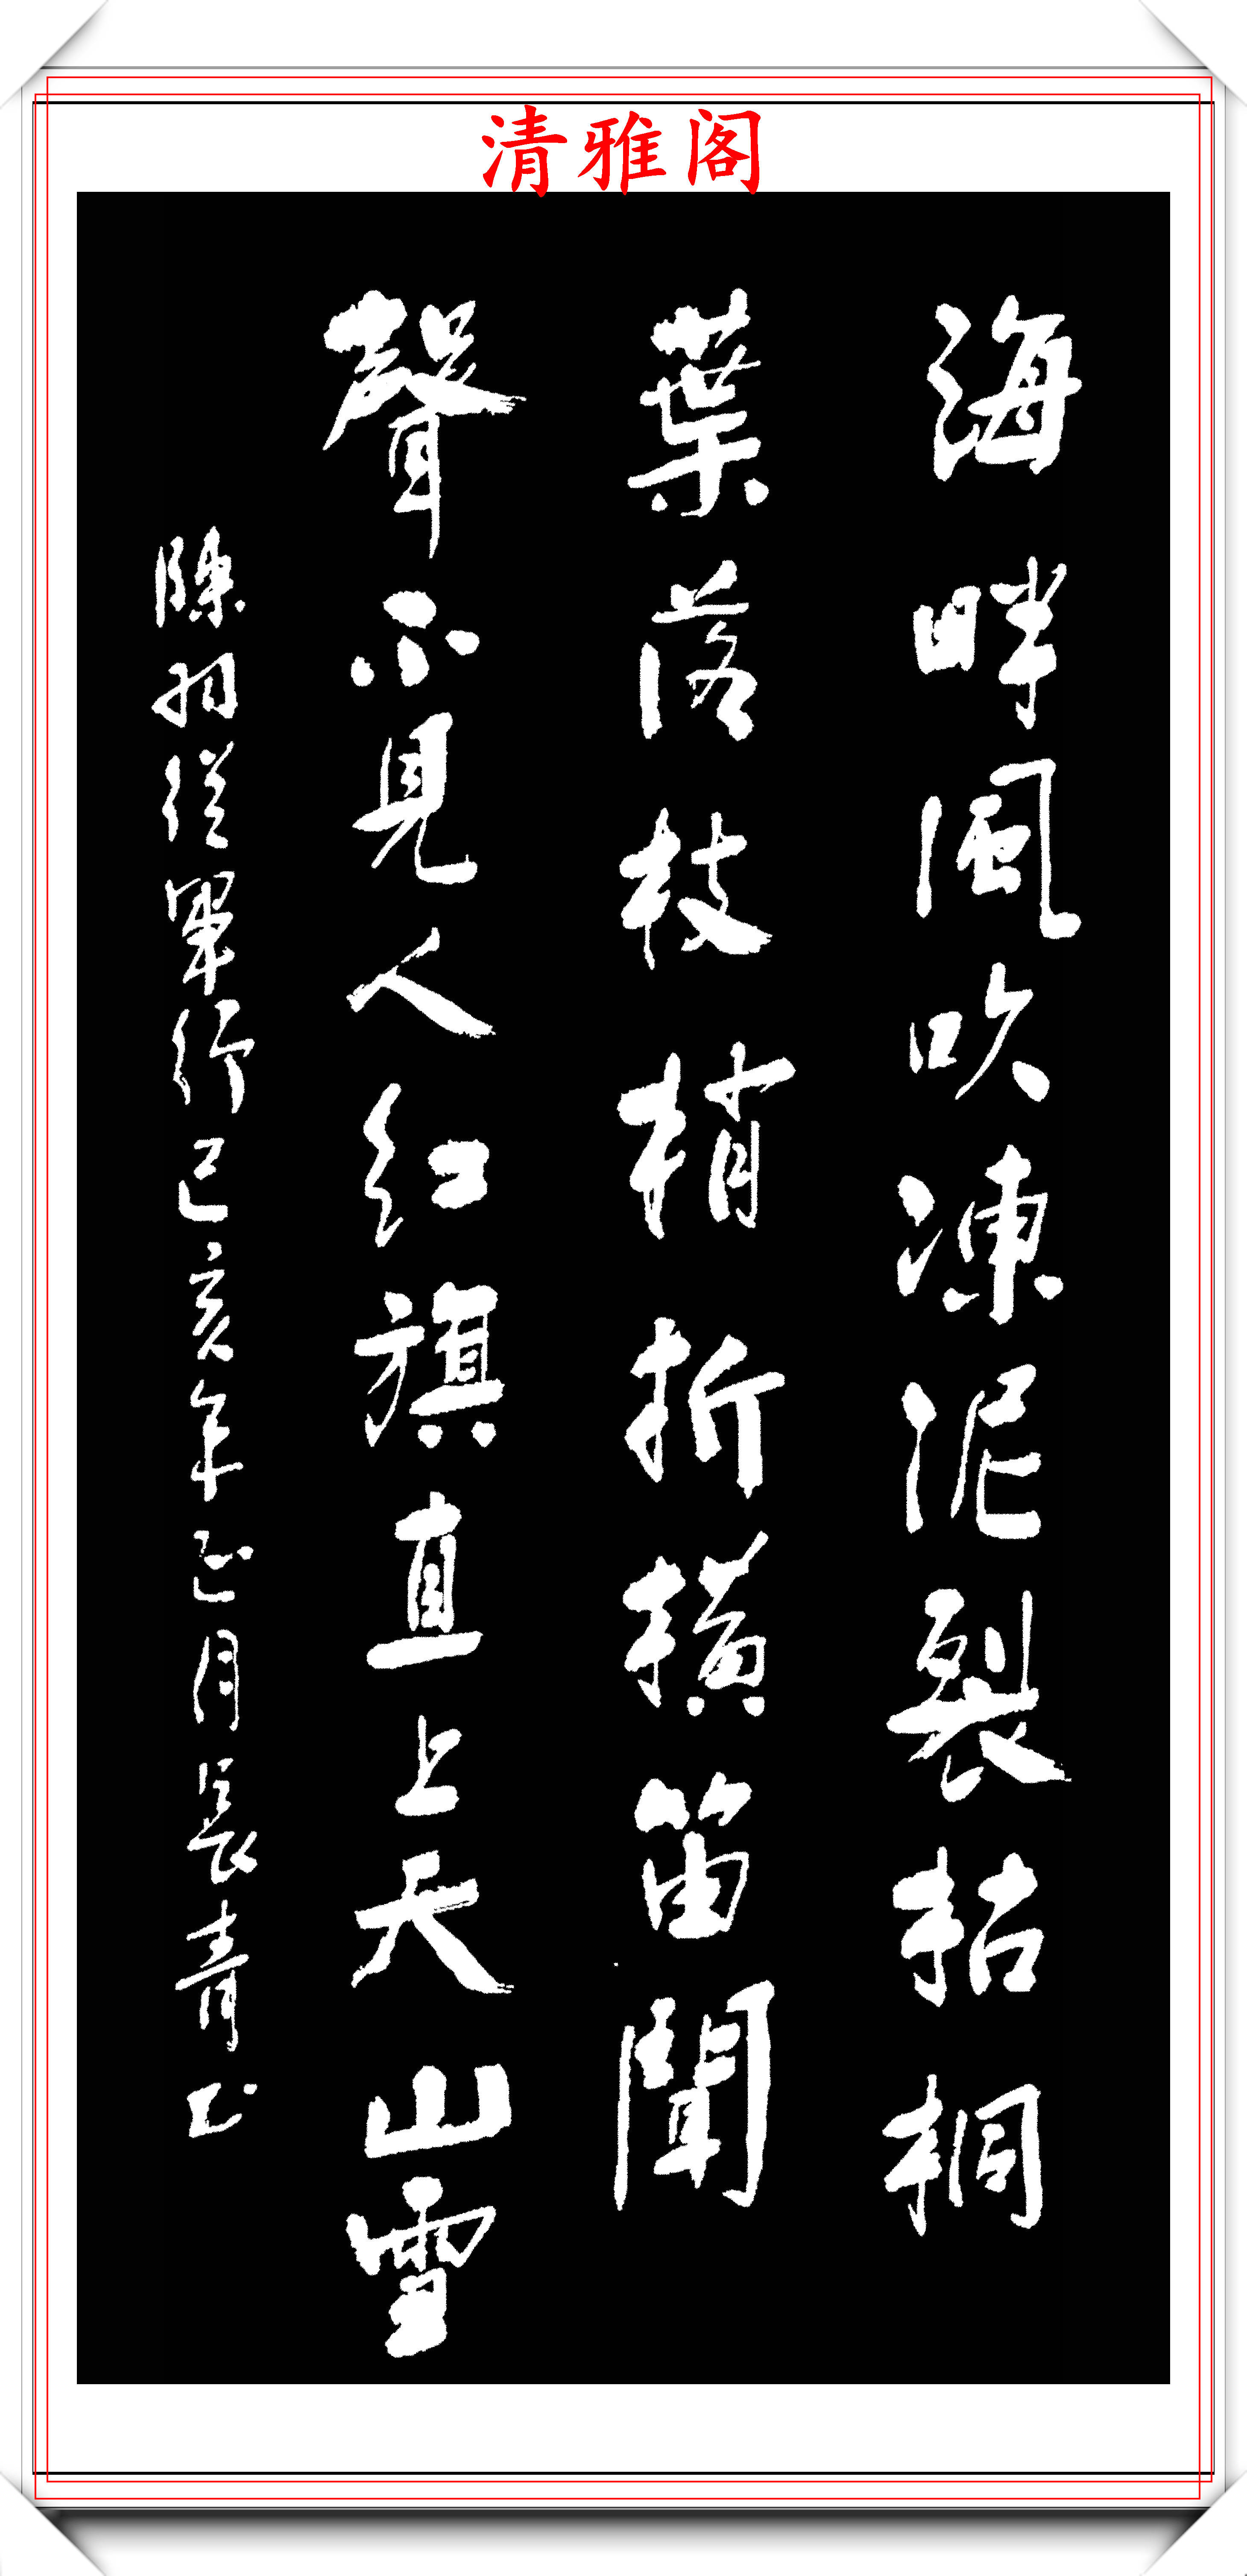 清雅阁
海畔風吹凍泥裂枯桐
葉落枝梢折橫笛聞
聲不見人红旗直上天山雪
陳羽從軍行己亥年正月吳長青书